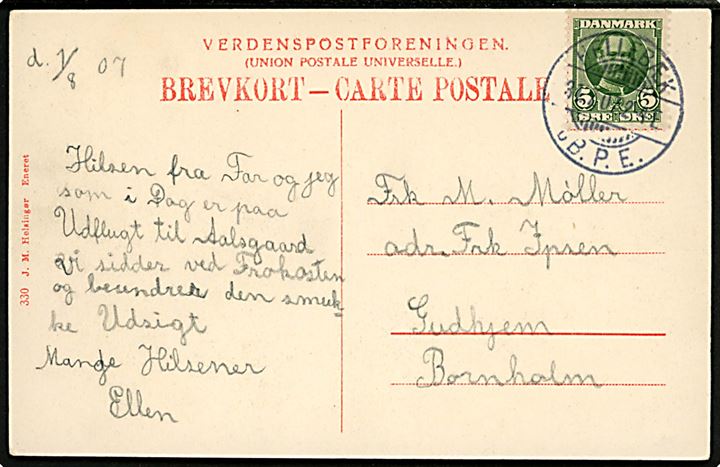 d. 1/8 07
VERDENSPOSTFORENINGEN.
(UNION POSTALE UNIVERSELLE.)
BREVKORT — CARTE POSTALE
DANMARK
5 5
ØRE ØRE
B.P.E.
330 J. M. Helsingør Eneret
Hilsen fra Far og jeg
som i Dag er paa
Udflugt til Aalsgaard
vi sidder ved Frokosten
og beundrer den smuk-
ke Udsigt
Mange Hilsener
Ellen
Frk M. Møller
adr. Frk Ipsen
Gudhjem
Bornholm